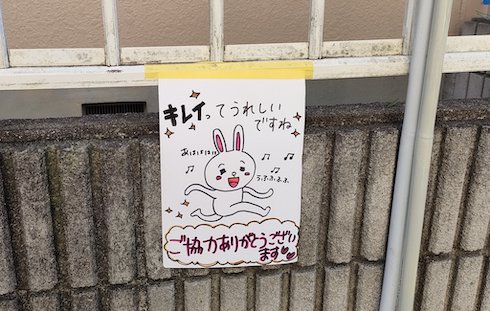 キレイってうれしい
ですね
あはははは
う,ふ,ふ,ふ,ふ
ご協力ありがとうござい
ます